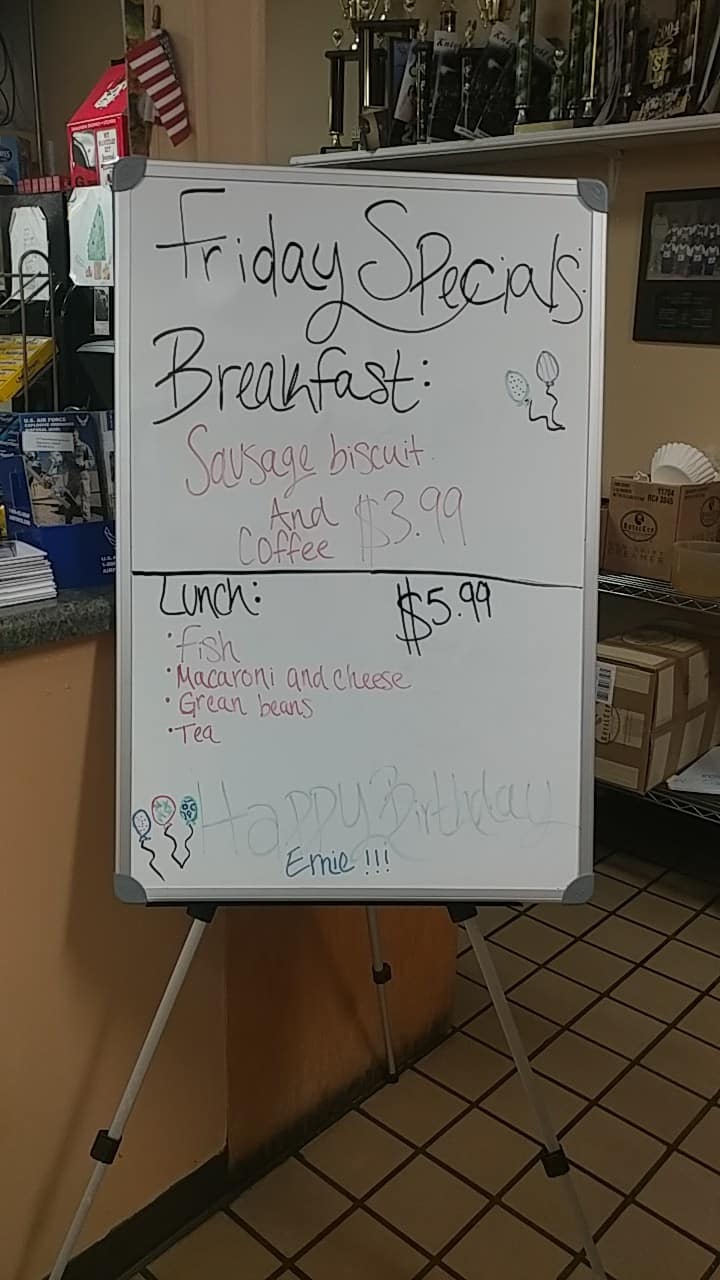 Friday Specials:
Breakfast:
Sausage biscuit
And
Coffee $3.99
Lunch: $5.99
• Fish
• Macaroni and cheese
• Grean beans
• Tea
Happy Birthday
Ernie !!!
U.S. AIR FORCE